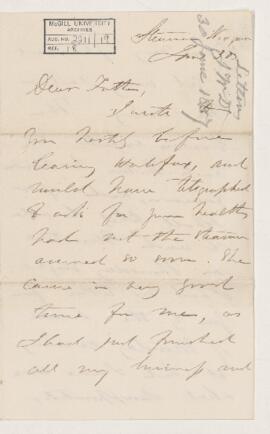 McGILL UNIVERSITY
ARCHIVES
ACC. NO. 2211/19
REF. 18
Steamer
June 30
Letter
30 June 1881
Dear Father,
I wrote
you hastily before
leaving Halifax, and
would have telegraphed
to ask for your health
had not the steamer
arrived so soon. She
came in very good
time for me, as
I had just finished
all my business and